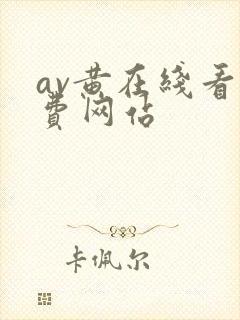 av黄在线看
费网佔
卡佩尔